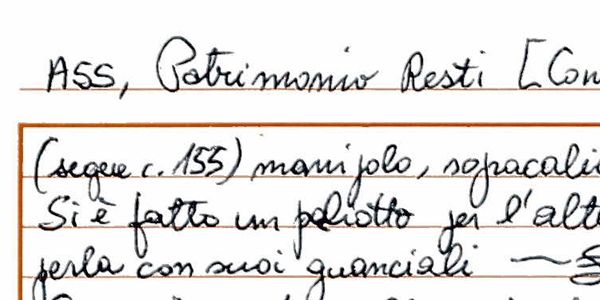 ASS, Patrimonio Resti [Con
(segue c. 155) manipolo, sopracali
Si è fatto un paliotto per l'alt
perla con suoi guanciali —